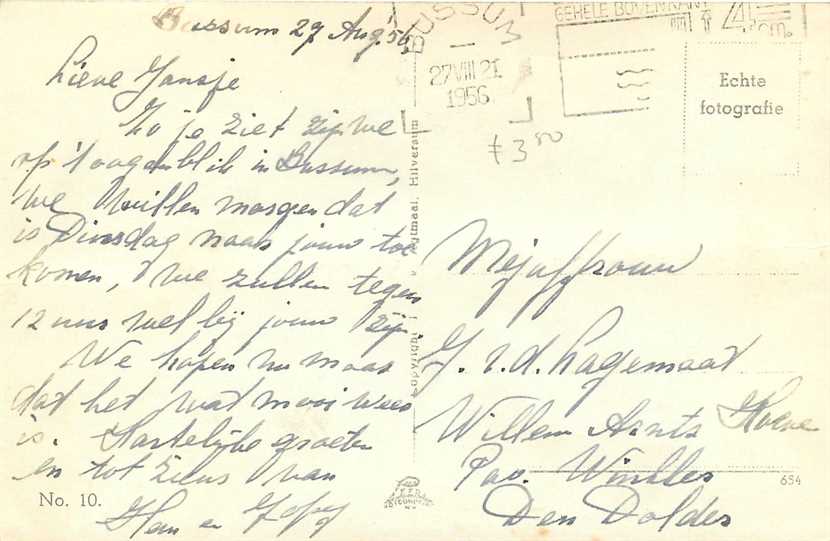 Bussum 27 Aug. 56
Lieve Jansje
Zo je ziet zijn we
op 't oogenblik in Bussum,
we willen morgen dat
is Dinsdag naar jouw toe
komen, we zullen tegen
12 uur wel bij jouw zijn.
We hopen nu maar
dat het wat mooi weer
is. Hartelijke groeten
en tot ziens van
Han en
No. 10.
BUSSUM
27 VIII 21
1956
GEHELE BOVENKANT
f 3 50
Echte
fotografie
Copyright
Hilversum
Mejuffrouw
J. v. d. Lagemaat
Willem Arnts Hoeve
Pav. Winkler
Den Dolder
654